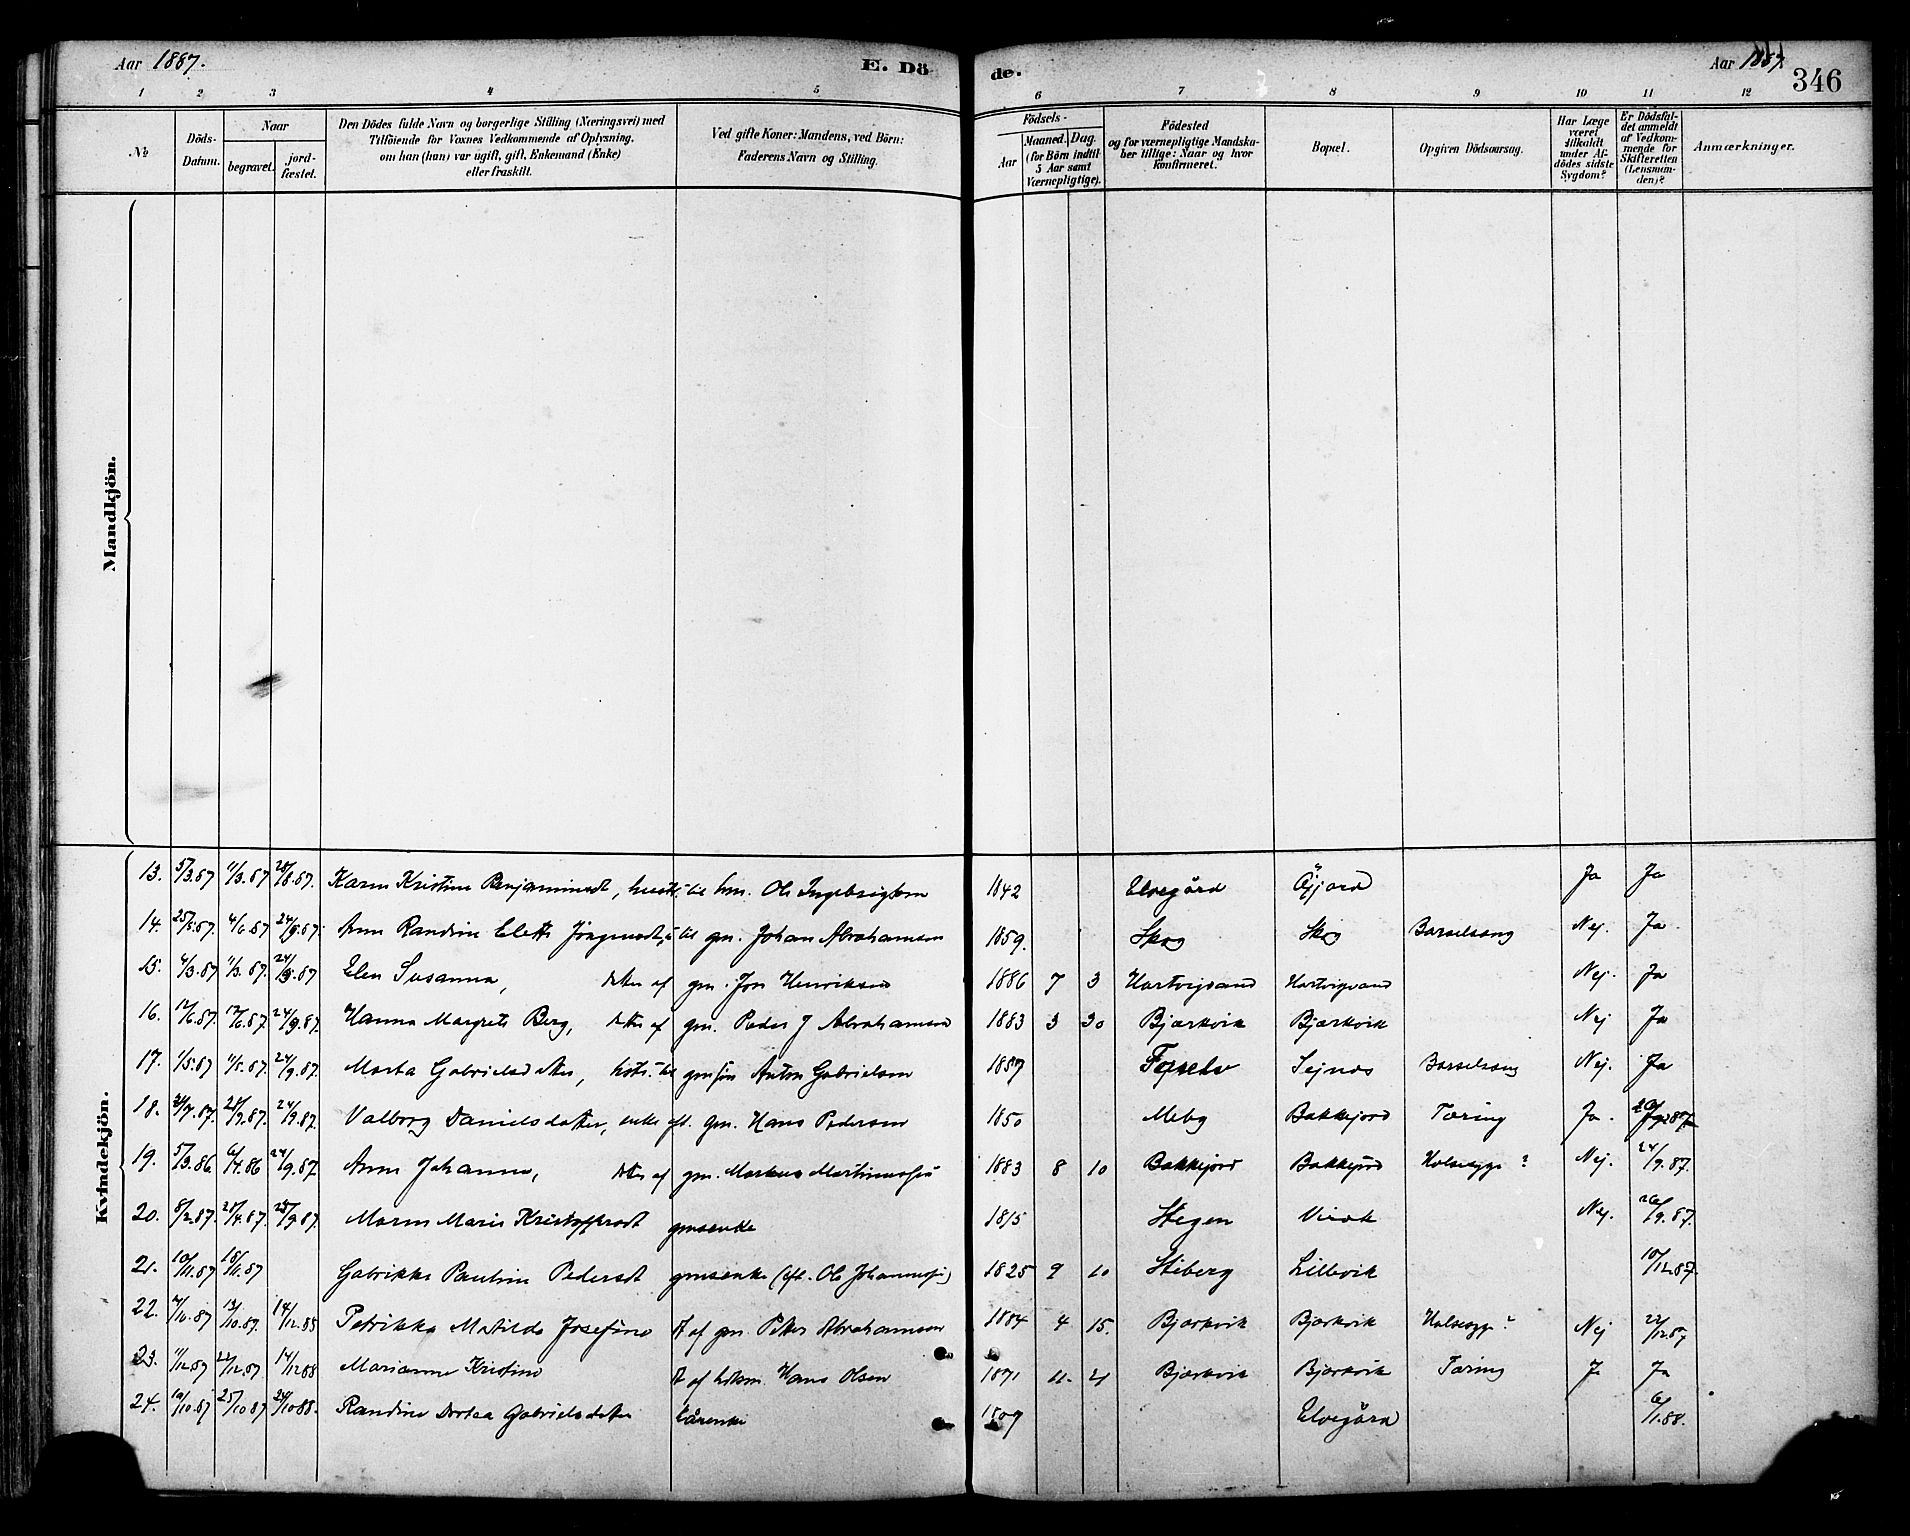 Aar 1887.
E. Dö de.
Aar 1887.
346
1 2 3 4 5 6 7 8 9 10 11 12
№
Döds-Datum.
Naar
begravet.
jord-fæstet.
Den Dödes fulde Navn og borgerlige Stilling (Næringsvei) med
Tilföiende for Voxnes Vedkommende af Oplysning,
om han (hun) var ugift, gift, Enkemand (Enke)
eller fraskilt.
Ved gifte Koner: Mandens, ved Börn:
Faderens Navn og Stilling.
Födsels-
Aar
Maaned. Dag.
(for Börn indtil
5 Aar samt
Værnepligtige).
Födested
og for værnepligtige Mandska-
ber tillige: Naar og hvor
konfirmeret.
Bopæl.
Opgiven Dödsaarsag.
Har Læge
været
tilkaldt
under Af-
dödes sidste
Sygdom?
Er Dödsfal-
det anmeldt
af Vedkom-
mende for
Skifteretten
(Lensman-
den)?
Anmærkninger.
Mandkjön.
Kvindekjön.
13. 5/3.87 11/3.87 28/8.87. Karen Kristine Benjaminsdt, hustr. til hm. Ole Ingebrigtsen 1842 Elvegård Øjjord Ja Ja
14. 25/5.87. 4/6.87 24/9.87. Ane Randine Elette Jörgensdt, til gm. Johan Abrahamsen 1859. Skog Skog Barselseng Nej. Ja.
15. 4/3.87 11/3.87. 24/9.87 Elen Susanna, datter af gm. Jon Henriksen 1886 7 3 Hartvigsand Hartvigsand Nej. Ja
16. 12/6.87. 17/6.87. 24/9.87. Hanna Margrete Berg, datter af gm. Peder J Abrahamsen 1883 3 30 Bjærkvik Bjærkvik Nej Ja
17. 1/5.87 11/5.87. 24/9.87. Marta Gabrielsdatter, hustr. til Anton Gabrielsen 1857 Sejnes Barselseng Nej. Ja
18. 87. 87. 24/9.87. Valborg Danielsdatter, enke eft. gm. Hans Pedersen 1850 Meby Bakkejord Tæring Ja. 87
19. 5/3.86 6/4.86 24/9.87. Ane Johanna, datter af gm. Markus Martinussen 1883 8 10 Bakkejord Bakkejord Halssyge? Nej. 24/9.87.
20. 8/2.87. 4.87. 9.87. Maren Marie Kristoffersdt gmsenke 1815 Stegen Virak Nej. 26/9.87.
21. 10/11.87 18/11.87 Gabrikke Pauline Pedersdt gmsenke (eft. Ole Johannessen) 1825 9 10 Stiberg Lillevik 10/12.87.
22. 7/10.87 13/10.87. 14/12.88 Petrikke Matilde Josefine dt af gm. Peter Abrahamsen 1884 4 15. Bjærkvik Bjærkvik Halssyge? Nej 22/12.87
23. 11/12.87 22/12.87 14/12.88 Marianne Kristine dt af Hans Olsen 1871 11. 21 Bjærkvik Bjærkvik Tæring J Ja
24. 19/10.87 25/10 87 24/10 88. Randine Dortea Gabrielsdatter kårenke 1807 Elvegård 6/1.88.